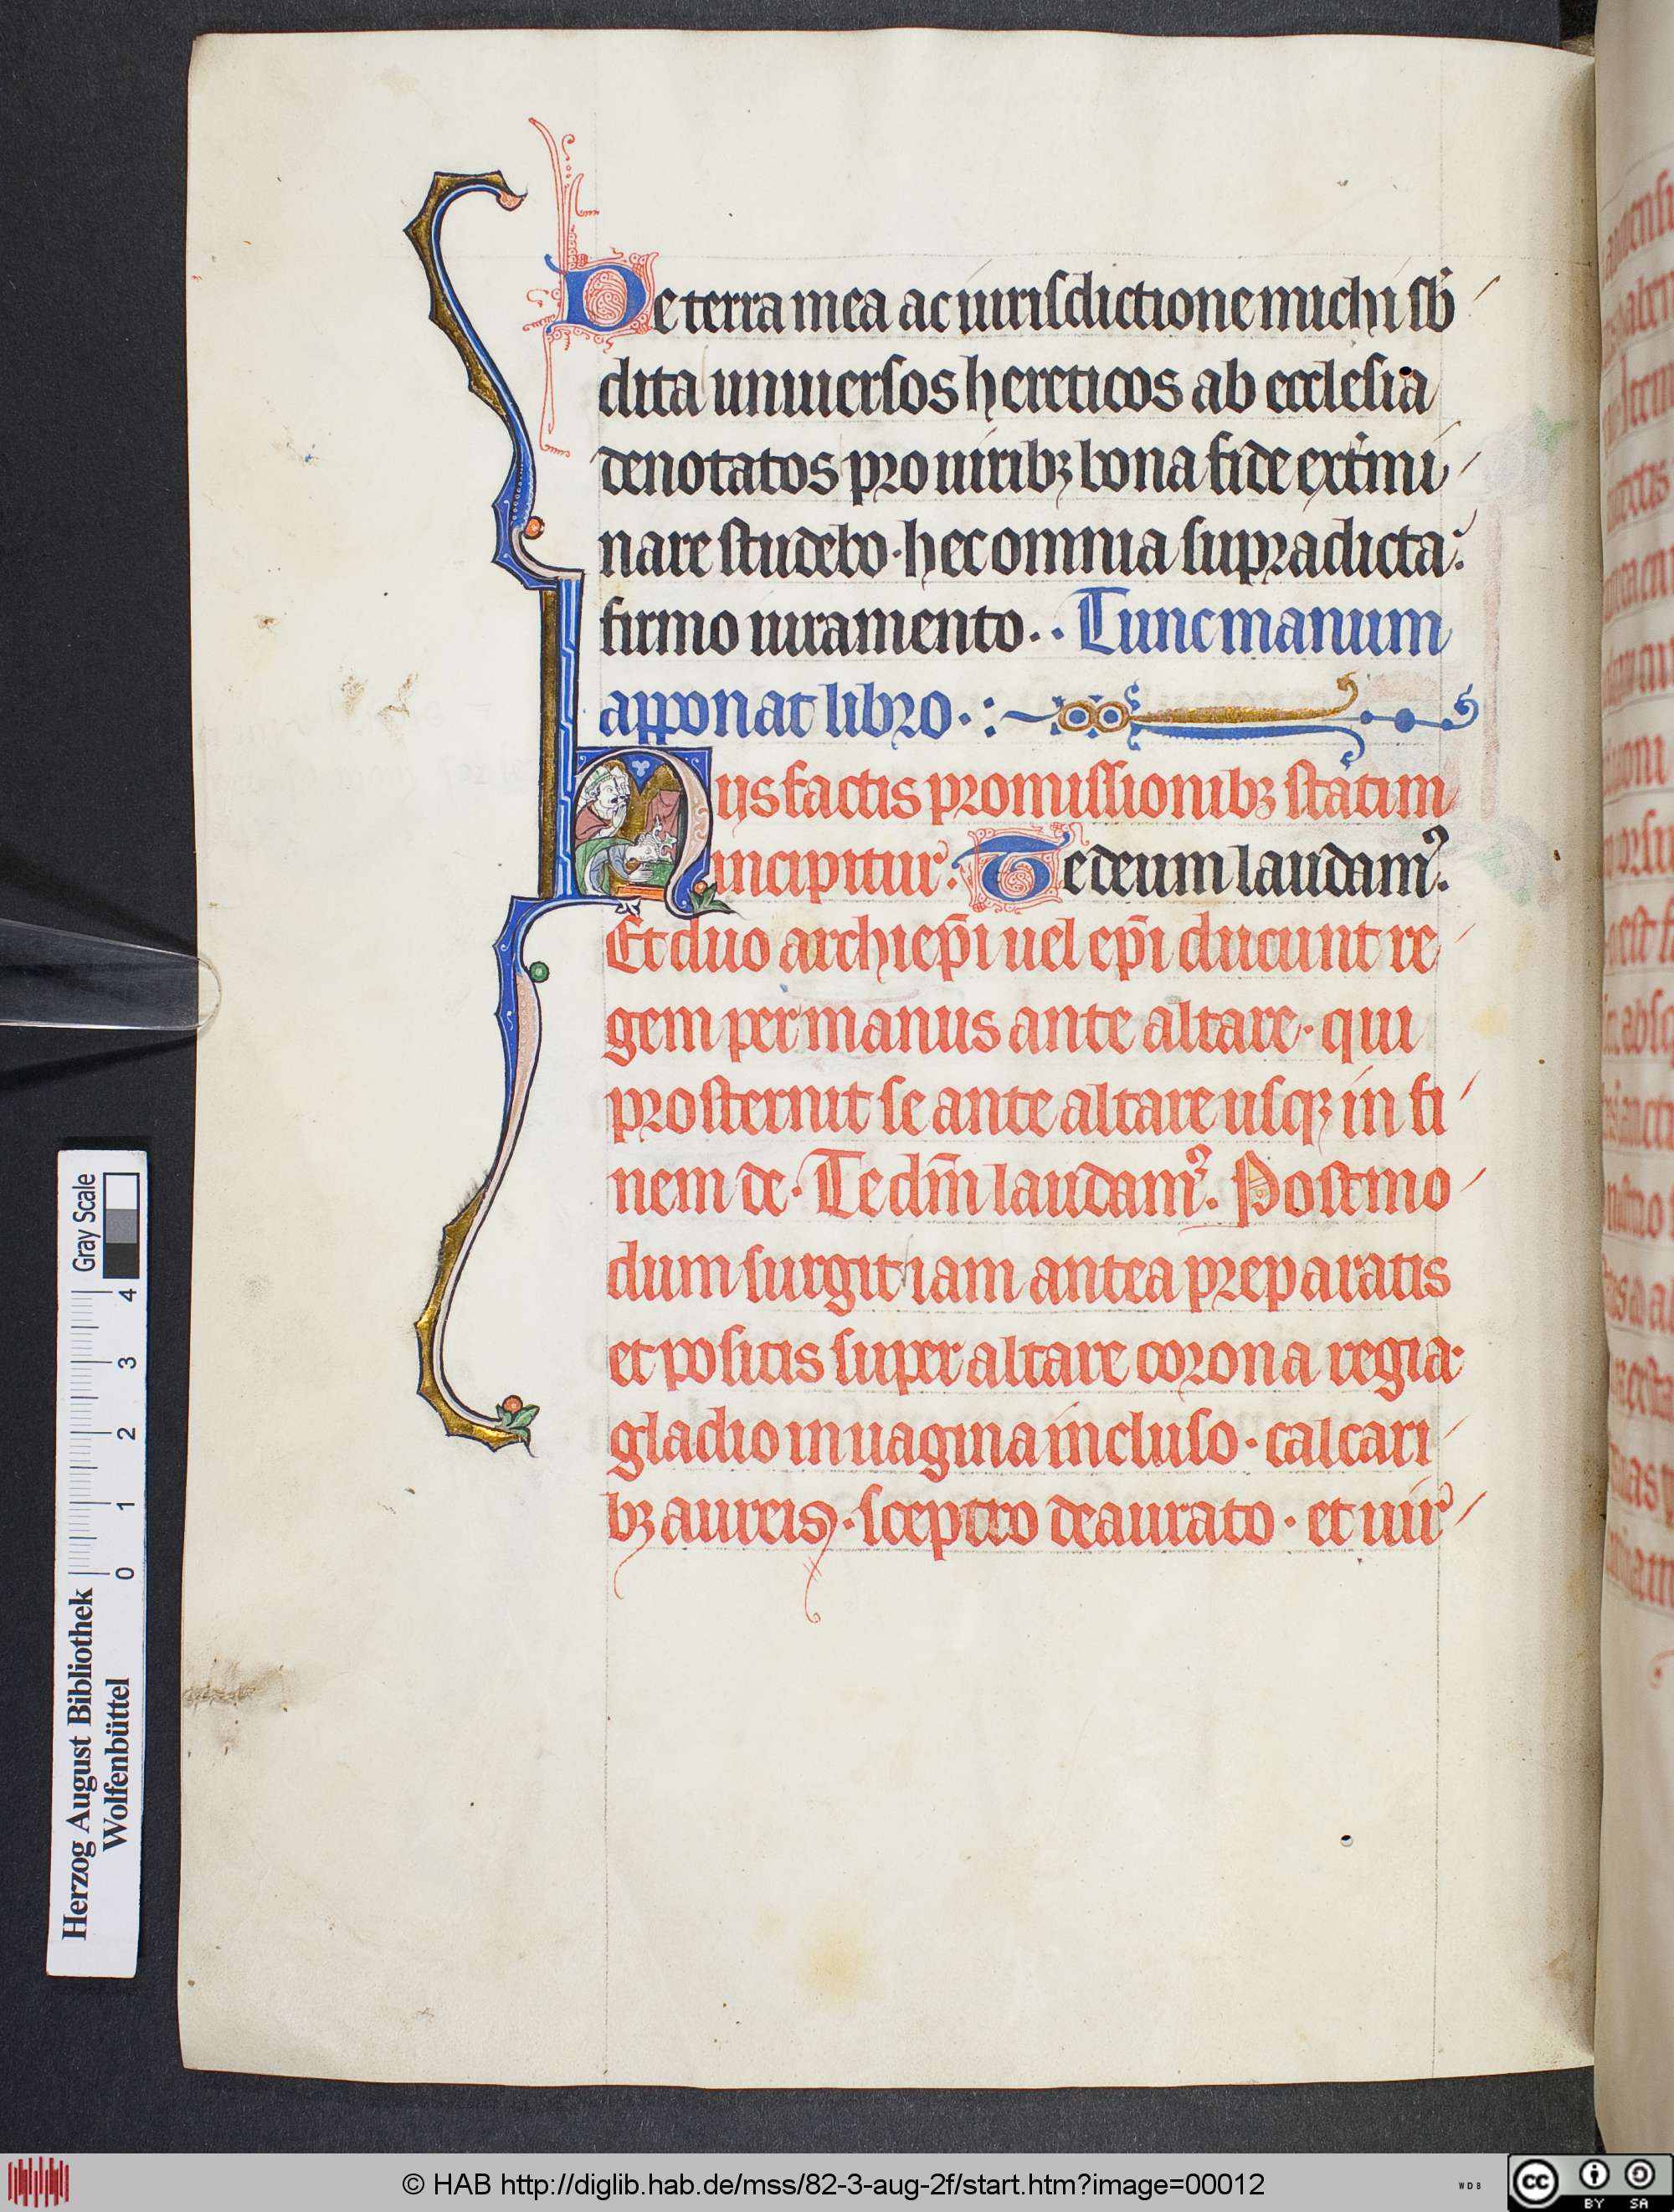 De terra mea ac iurisdictione michi sb
dita uniuersos hereticos ab ecclesia
denotatos pro uiribꝫ bona fide extͥmi
nare studebo · hec omnia supradicta ·
firmo iuramento · · Tunc manum
apponat libro · :
Hijs factis promissionibꝫ statim
incipitur · Te deum laudamꝰ ·
Et duo archiep̄i uel ep̄i ducunt re
gem per manus ante altare · qui
prosternit se ante altare usqꝫ in fi
nem de · Te dm̄ laudamꝰ · Postmo
dum surgit iam antea preparatis
et positis super altare corona regia ·
gladio in uagina incluso · calcari
bꝫ aureis · sceptro deaurato · et uir
Gray Scale
4 3 2 1 0
Herzog August Bibliothek
Wolfenbüttel
© HAB http://diglib.hab.de/mss/82-3-aug-2f/start.htm?image=00012
WDB
cc BY SA